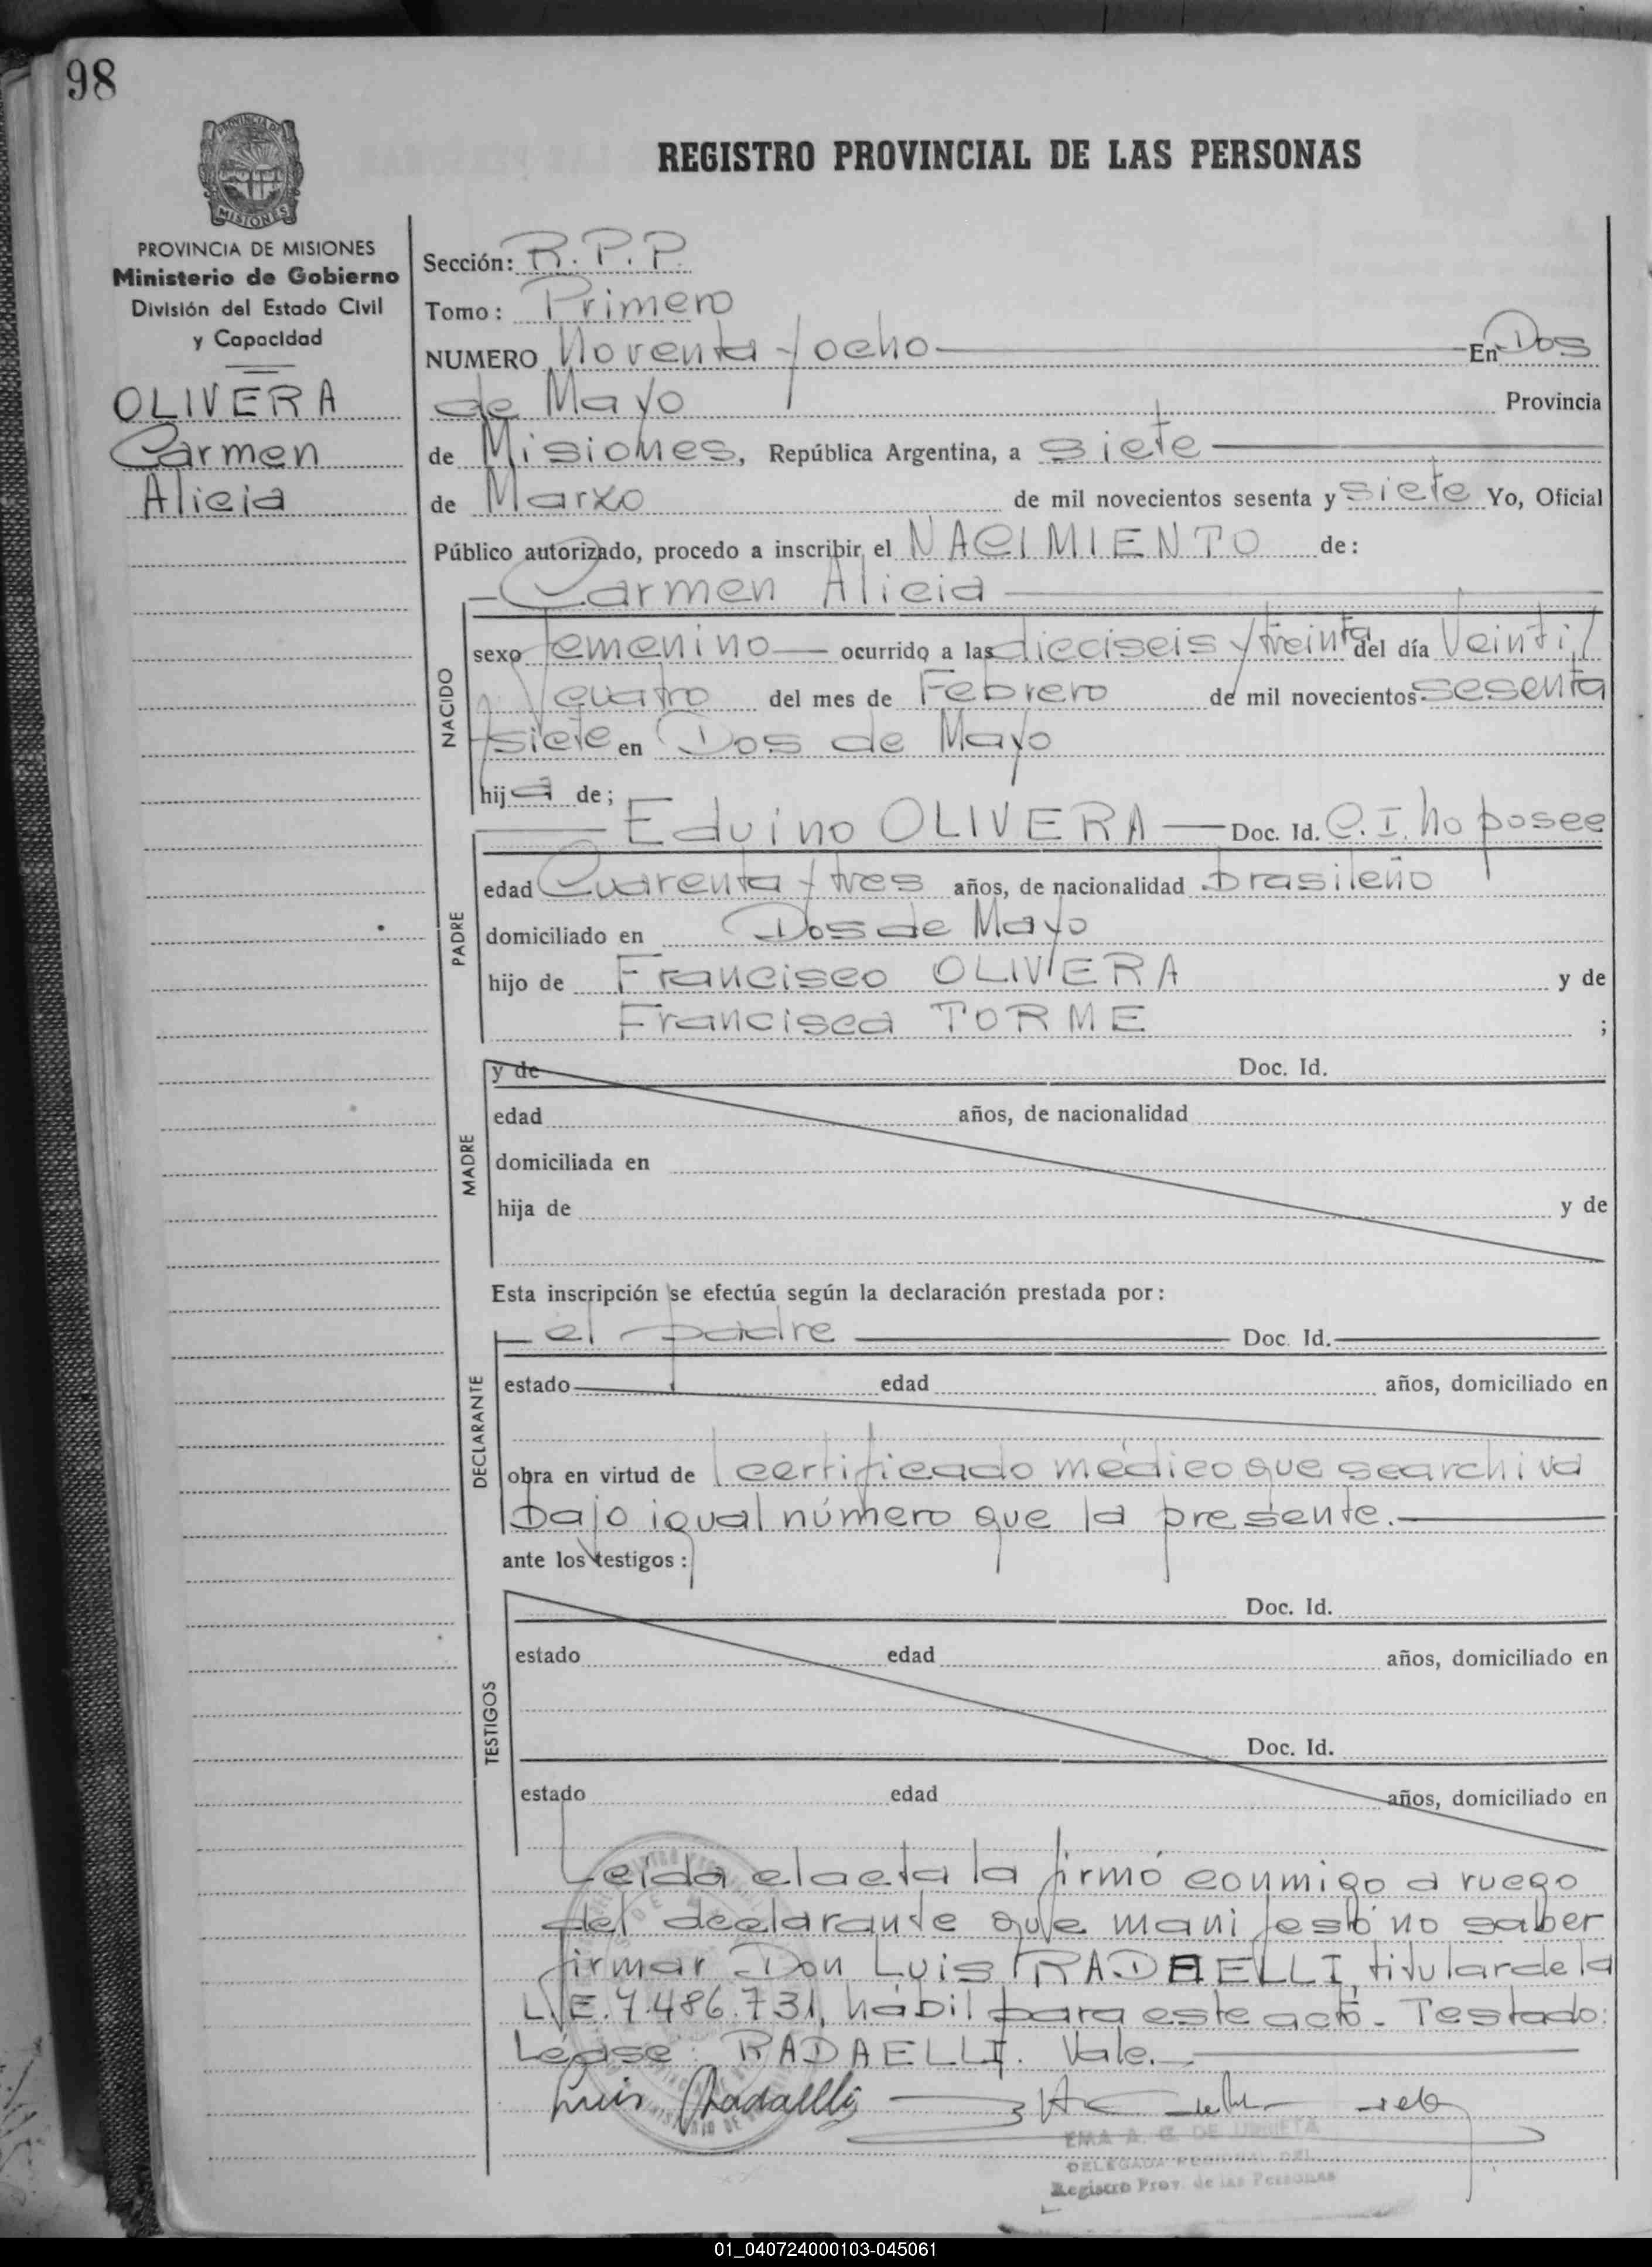 98
PROVINCIA DE
MISIONES
REGISTRO PROVINCIAL DE LAS PERSONAS
PROVINCIA DE MISIONES
Ministerio de Gobierno
División del Estado Civil
y Capacidad
OLIVERA
Carmen
Alicia
Sección: R.P.P.
Tomo: Primero
NUMERO Noventa y ocho En Dos
de Mayo Provincia
de Misiones, República Argentina, a siete
de Marzo de mil novecientos sesenta y siete Yo, Oficial
Público autorizado, procedo a inscribir el NACIMIENTO de:
Carmen Alicia
NACIDO
sexo femenino ocurrido a las dieciseis y treinta del día Veinti
cuatro del mes de Febrero de mil novecientos sesenta
y siete en Dos de Mayo
hija de;
PADRE
Eduino OLIVERA Doc. Id. C.I. no posee
edad Cuarenta y tres años, de nacionalidad brasileño
domiciliado en Dos de Mayo
hijo de Francisco OLIVERA y de
Francisca TORME ;
MADRE
y de Doc. Id.
edad años, de nacionalidad
domiciliada en
hija de y de
Esta inscripción se efectúa según la declaración prestada por:
DECLARANTE
el padre Doc. Id.
estado edad años, domiciliado en
obra en virtud de certificado médico que se archiva
bajo igual número que la presente.
ante los testigos:
TESTIGOS
Doc. Id.
estado edad años, domiciliado en
Doc. Id.
estado edad años, domiciliado en
Leída el acta la firmó conmigo a ruego
del declarante que manifestó no saber
firmar Don Luis RADAELLI, titular de la
L.E. 7.486.731, hábil para este acto. Testado:
Léase: RADAELLI. Vale.
Luis Radaelli
EMA A. C. DE URRIETA
DELEGADA REGIONAL DEL
Registro Prov. de las Personas
01_040724000103-045061